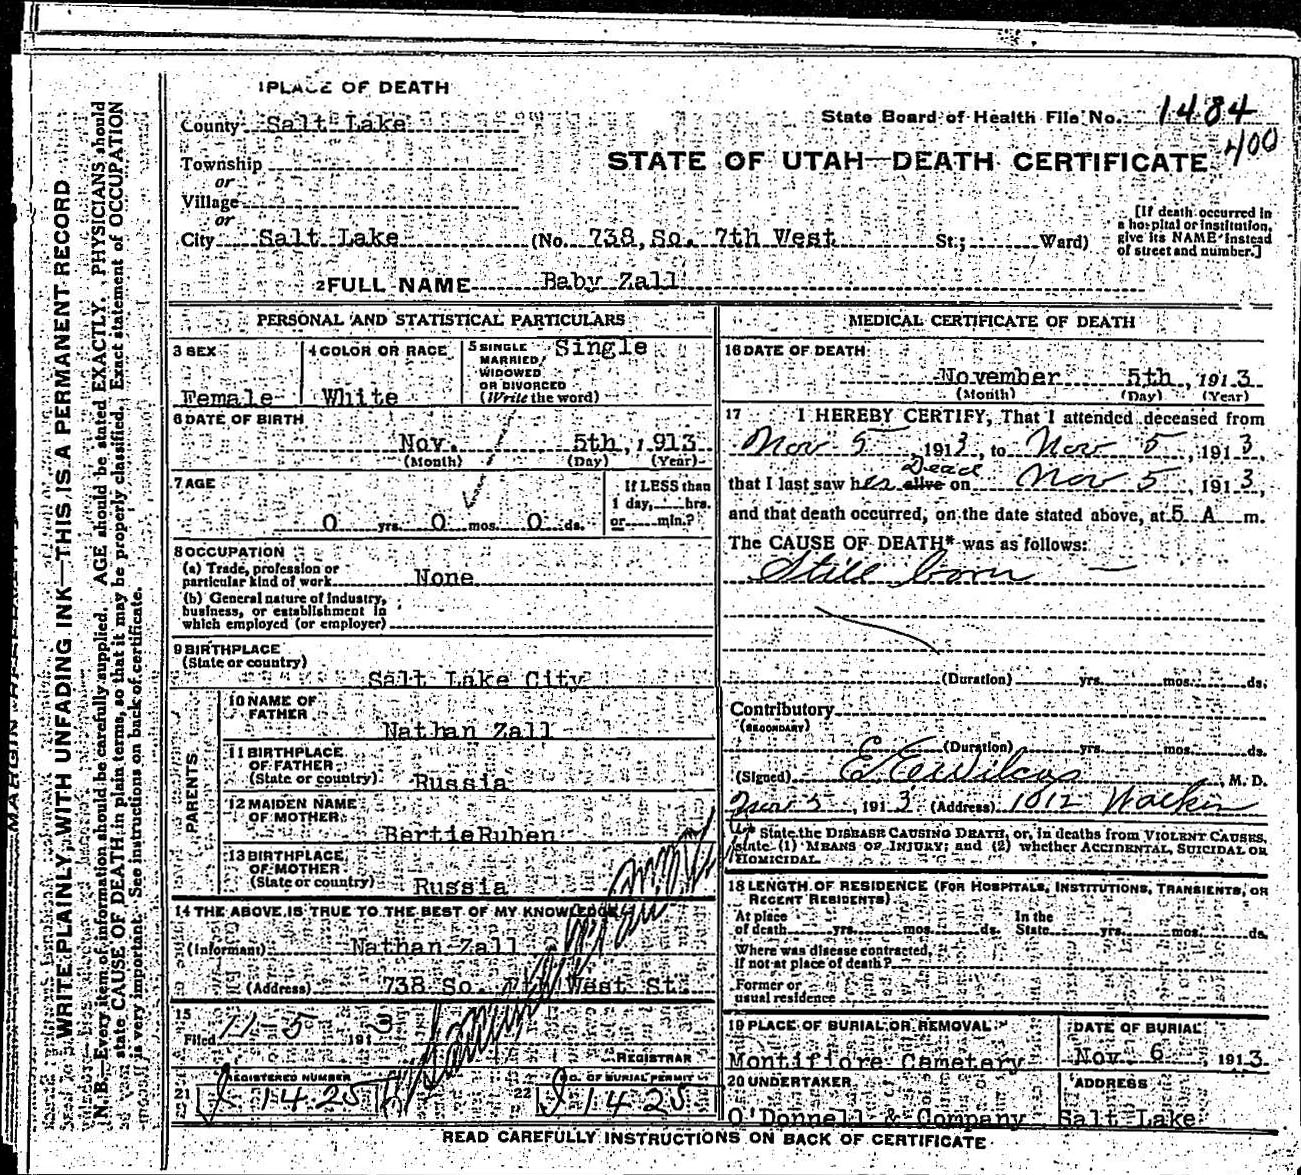 1 PLACE OF DEATH
County Salt Lake
State Board of Health File No. 1484
400
Township
or
Village
or
STATE OF UTAH—DEATH CERTIFICATE
City Salt Lake (No. 738, So. 7th West St.; Ward)
[If death occurred in
a hospital or institution,
give its NAME instead
of street and number.]
2 FULL NAME Baby Zall
PERSONAL AND STATISTICAL PARTICULARS
3 SEX
Female
4 COLOR OR RACE
White
5 SINGLE
MARRIED
WIDOWED
OR DIVORCED
(Write the word)
Single
6 DATE OF BIRTH
Nov. 5th, 1913
(Month) (Day) (Year)
7 AGE
0 yrs. 0 mos. 0 ds.
If LESS than
1 day, hrs.
or min.?
8 OCCUPATION
(a) Trade, profession or
particular kind of work None
(b) General nature of Industry,
business, or establishment in
which employed (or employer)
9 BIRTHPLACE
(State or country)
Salt Lake City
PARENTS
10 NAME OF
FATHER
Nathan Zall
11 BIRTHPLACE
OF FATHER
(State or country) Russia
12 MAIDEN NAME
OF MOTHER
Bertie Ruben
13 BIRTHPLACE
OF MOTHER
(State or country) Russia
14 THE ABOVE IS TRUE TO THE BEST OF MY KNOWLEDGE
(Informant) Nathan Zall
(Address) 738 So. 7th West St.
15
Filed 11-5 1913
REGISTRAR
21 REGISTERED NUMBER
J 1425
22 NO. OF BURIAL PERMIT
J 1425
MEDICAL CERTIFICATE OF DEATH
16 DATE OF DEATH
November 5th, 1913
(Month) (Day) (Year)
17 I HEREBY CERTIFY, That I attended deceased from
Nov 5 1913, to Nov 5, 1913,
Dead
that I last saw her alive on Nov 5, 1913,
and that death occurred, on the date stated above, at 5 A m.
The CAUSE OF DEATH* was as follows:
Still born
(Duration) yrs. mos. ds.
Contributory
(SECONDARY)
(Duration) yrs. mos. ds.
(Signed) E E Wilcox, M. D.
Nov 5, 1913 (Address) 1012 Walker
State the DISEASE CAUSING DEATH, or, in deaths from VIOLENT CAUSES,
state (1) MEANS OF INJURY; and (2) whether ACCIDENTAL, SUICIDAL OR
HOMICIDAL.
18 LENGTH OF RESIDENCE (FOR HOSPITALS, INSTITUTIONS, TRANSIENTS, OR
RECENT RESIDENTS)
At place In the
of death yrs. mos. ds. State yrs. mos. ds.
Where was disease contracted,
If not at place of death?
Former or
usual residence
19 PLACE OF BURIAL OR REMOVAL
Montifiore Cametery
DATE OF BURIAL
Nov. 6 1913
20 UNDERTAKER
O'Donnell & Company
ADDRESS
Salt Lake
READ CAREFULLY INSTRUCTIONS ON BACK OF CERTIFICATE
WRITE PLAINLY WITH UNFADING INK—THIS IS A PERMANENT RECORD
N. B.—Every item of information should be carefully supplied. AGE should be stated EXACTLY. PHYSICIANS should
state CAUSE OF DEATH in plain terms, so that it may be properly classified. Exact statement of OCCUPATION
is very important. See instructions on back of certificate.